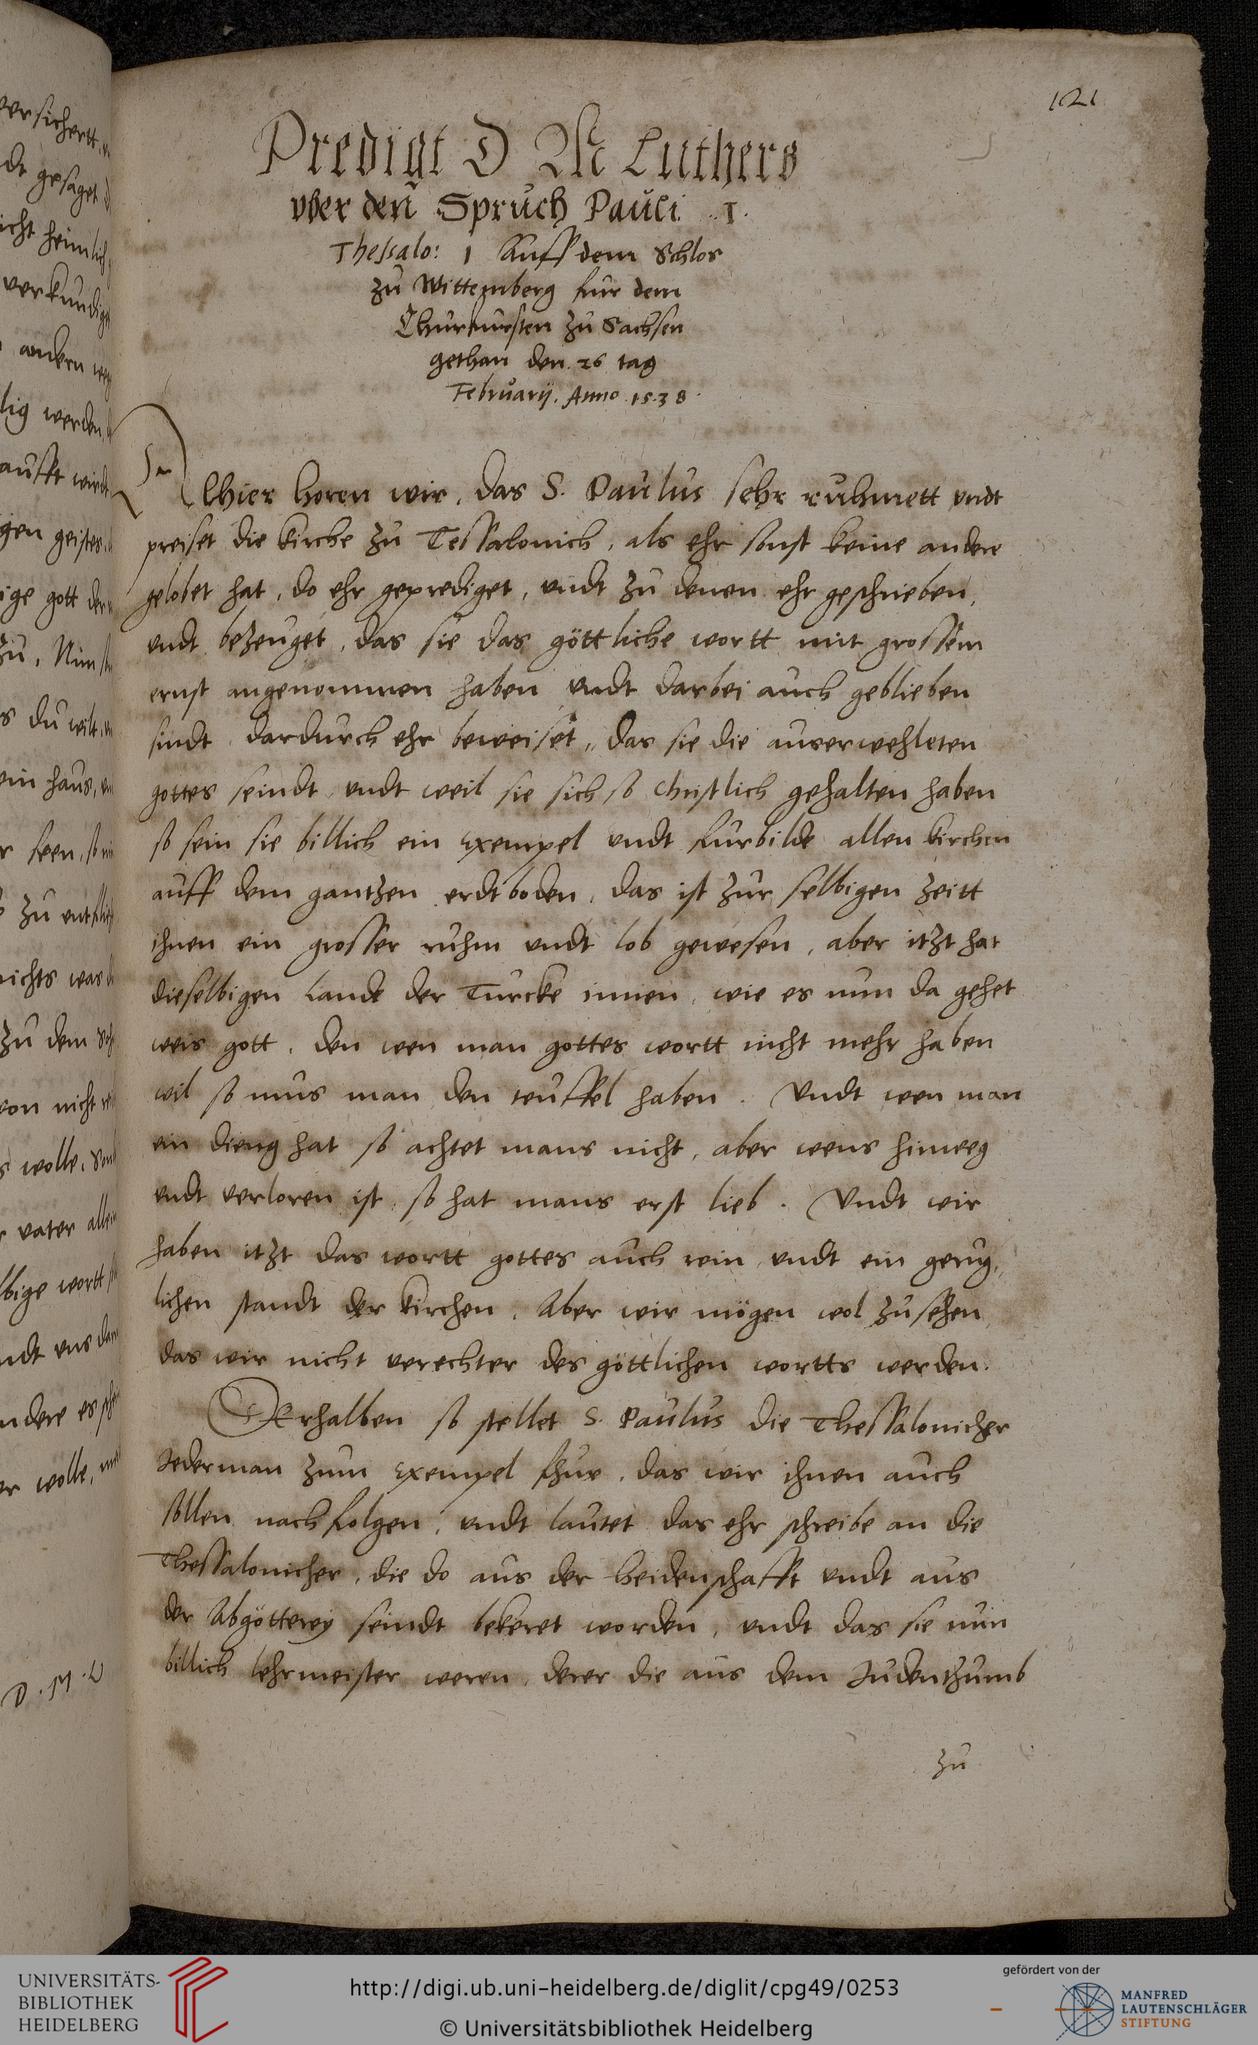 121
Predigt D M Luthers
vber den Spruch Pauli .1.
Thessalo: 1 Auff dem Schlos
zu Wittemberg fur dem
Churfursten zu Sachsen
gethan den .26 tag
Februarij. Anno .1538.
Alhier horen wir, das S. Paulus sehr ruhmett vndt
preiset die kirche zu Tessalonich, als ehr sonst keine andere
gelobet hat, do ehr geprediget, vndt zu denen ehr geschrieben,
vndt bezeuget, das sie das göttliche wortt mit grossem
ernst angenommen haben vndt darbei auch geblieben
sindt dardurch ehr beweiset, das sie die auserwehleten
gottes seindt vndt weil sie sich so christlich gehalten haben
so sein sie billich ein exempel vndt furbilde allen kirchen
auff dem gantzen erdtboden, das ist zur selbigen zeitt
ihnen ein grosser ruhm vndt lob gewesen, aber itzt hat
dieselbigen lande der Turcke innen, wie es nun da gehet
weis gott, den wen man gottes wortt nicht mehr haben
wil so mus man den teuffel haben. Vndt wen man
ein dieng hat so achtet mans nicht, aber wens hinweg
vndt verloren ist, so hat mans erst lieb. Vndt wir
haben itzt das wortt gottes auch rein vndt ein gerug,
lichen standt der kirchen, Aber wir mögen wol zusehen
das wir nicht verechter des göttlichen wortts werden.
Derhalben so stellet S. Paulus die Thessalonicher
Jederman zum exempel fhur, das wir ihnen auch
sollen nachfolgen, vndt lautet das ehr schreibe an die
Thessalonicher, die do aus der heidenschafft vndt aus
der Abgötterey seindt bekeret worden, vndt das sie nun
billich lehrmeister weren derer die aus dem Judenthumb
zu
versichertt
gesaget
verkundige
andern
werden
geistes
gott
zu, Nun
du wilt
ein haus,
nichts was
zu dem
von nicht
wolle,
vater
wortt
vndt vns
andere es
wolle,
D. M. L
UNIVERSITÄTS-
BIBLIOTHEK
HEIDELBERG
http://digi.ub.uni-heidelberg.de/diglit/cpg49/0253
© Universitätsbibliothek Heidelberg
gefördert von der
MANFRED
LAUTENSCHLÄGER
STIFTUNG